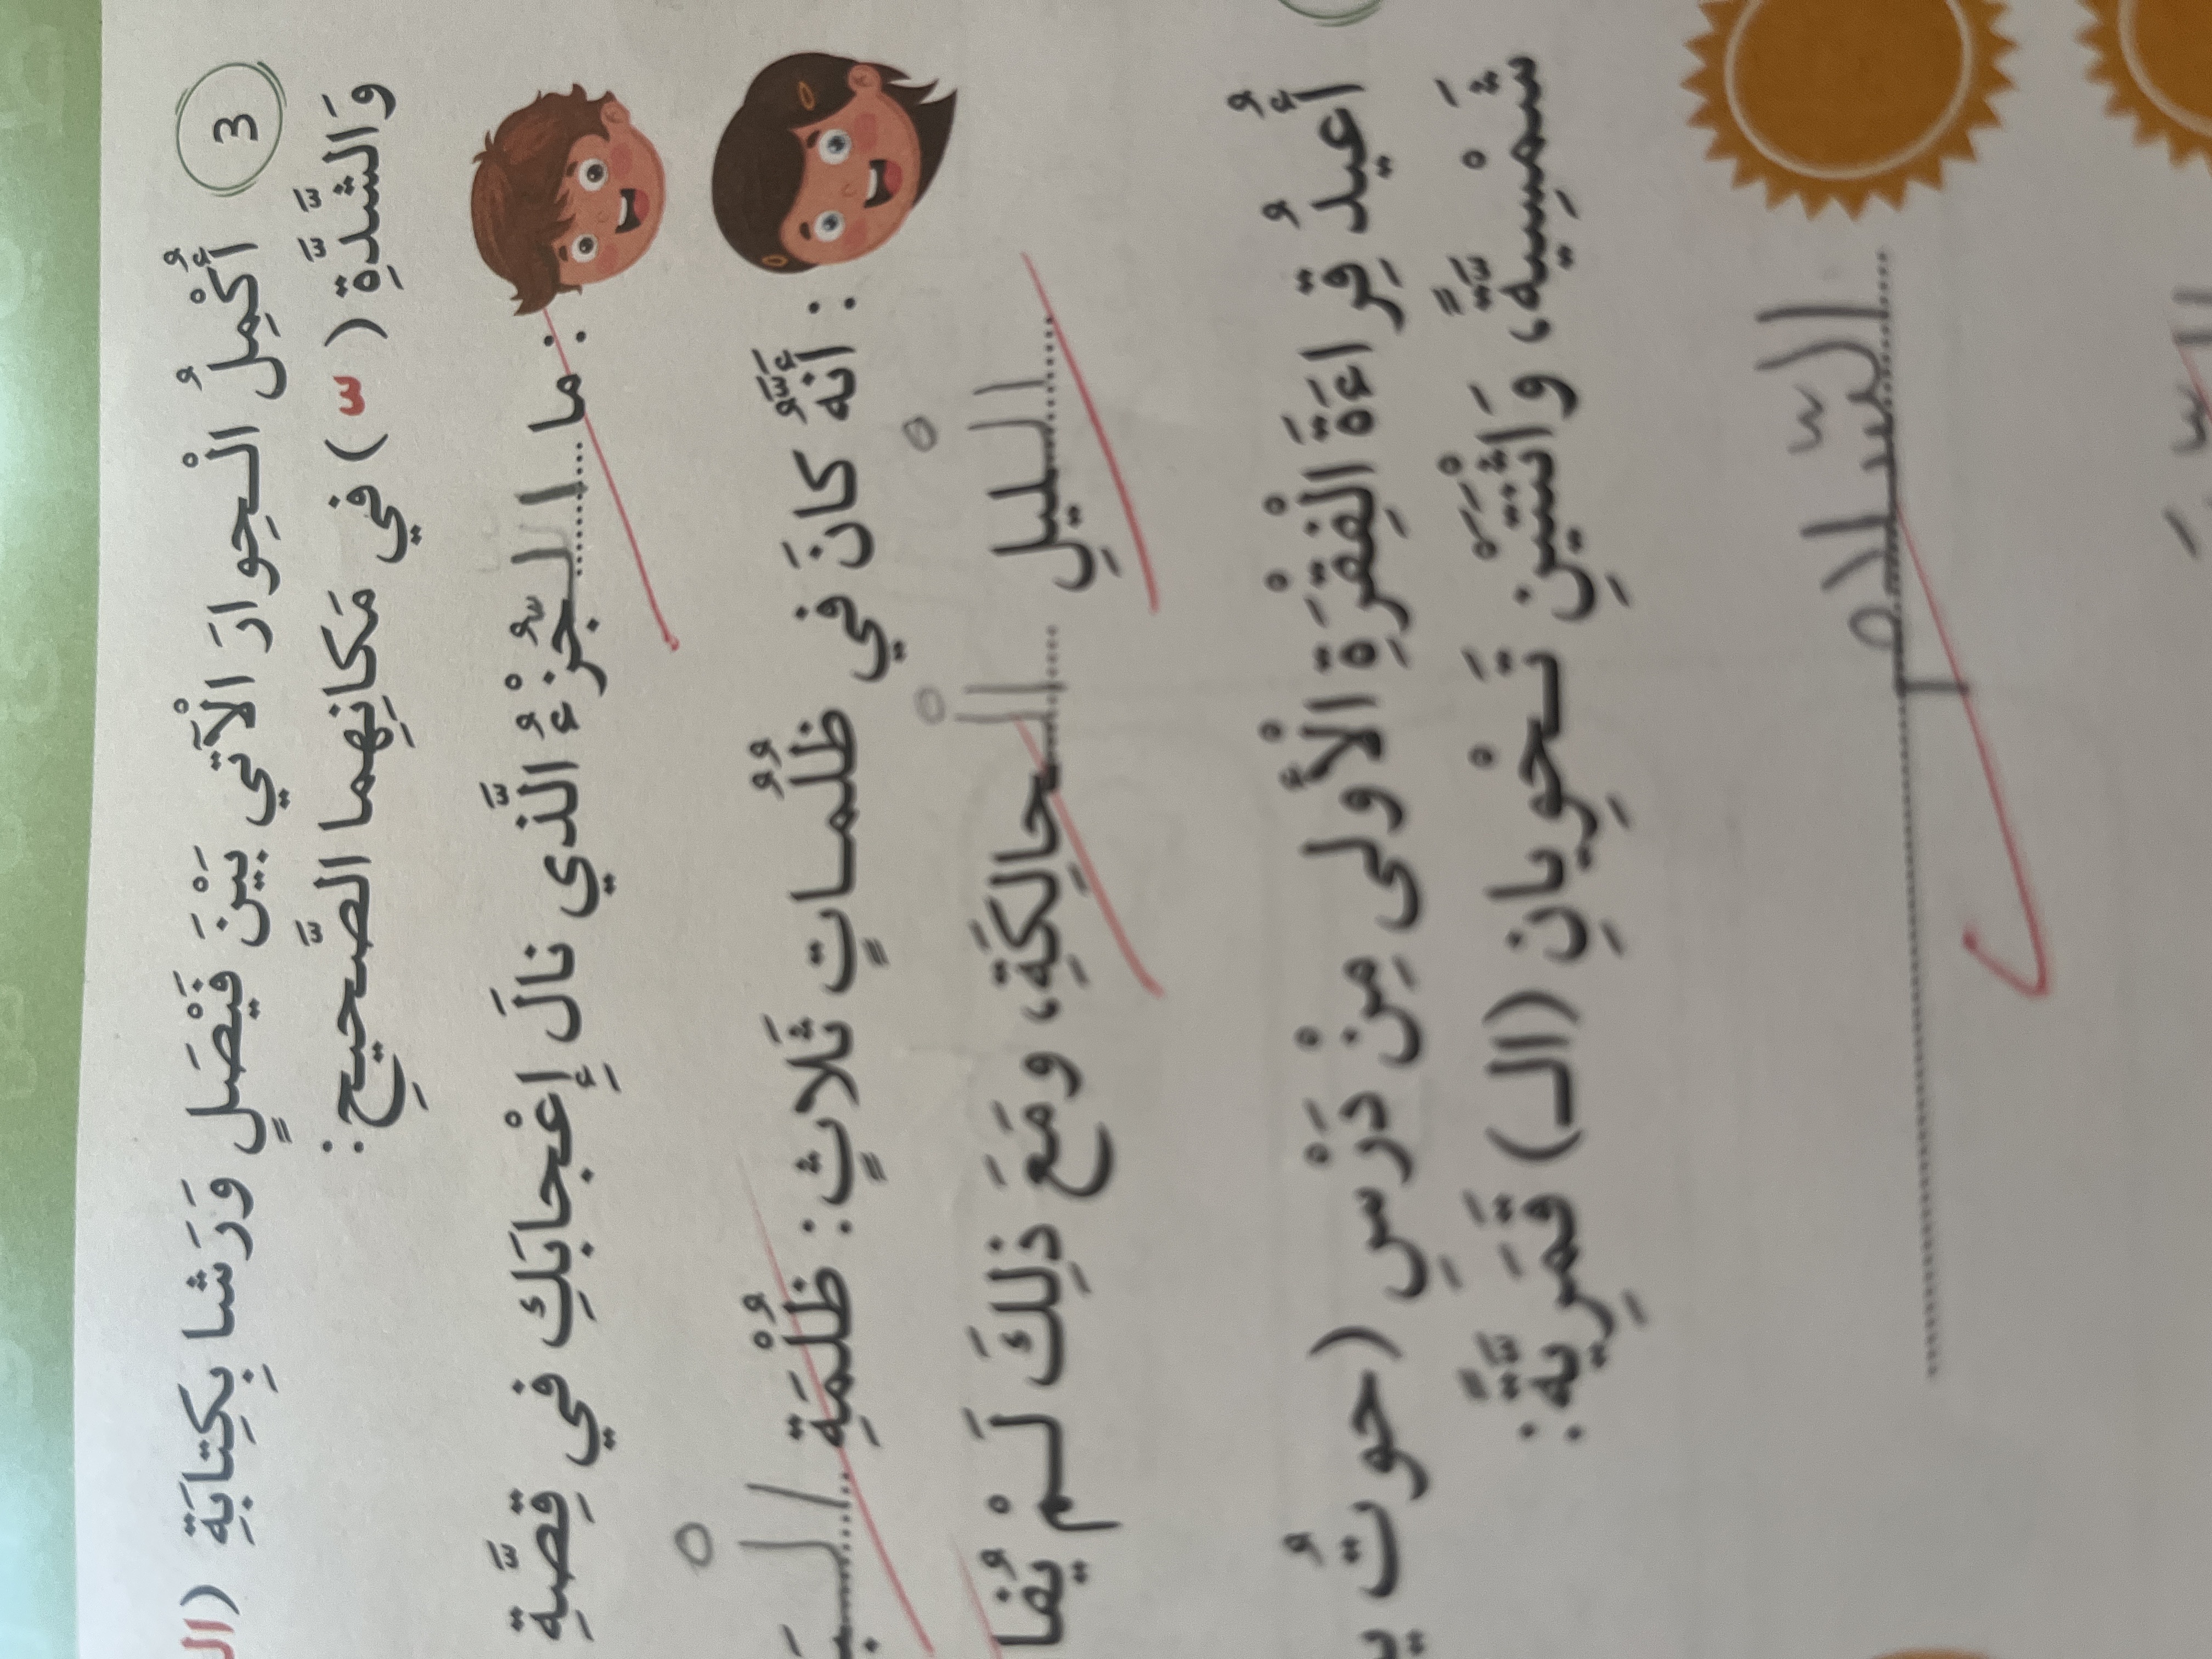 3 أُكْمِلُ الْحِوارَ الْآتي بَيْنَ فَيْصَلٍ وَرَشا بِكِتابَةِ (الـ
وَالشَّدَّةِ ( ّ ) في مَكانِهِما الصَّحيحِ:
: ما الـجُّزْءُ الَّذي نالَ إِعْجابَكِ في قِصَّةِ
: أَنَّهُ كانَ في ظُلُماتٍ ثَلاثٍ: ظُلْمَةِ الْـبَـ
الْـلـيلِ الْـحالِكَةِ، ومَعَ ذلِكَ لَمْ يُفا
أُعيدُ قِراءَةَ الْفِقْرَةِ الْأولى مِنْ دَرْسِ (حوتُ
شَمْسِيَّةً، وَاثْنَتَيْنِ تَحْوِيانِ (الـ) قَمَرِيَّةً:
السّلام